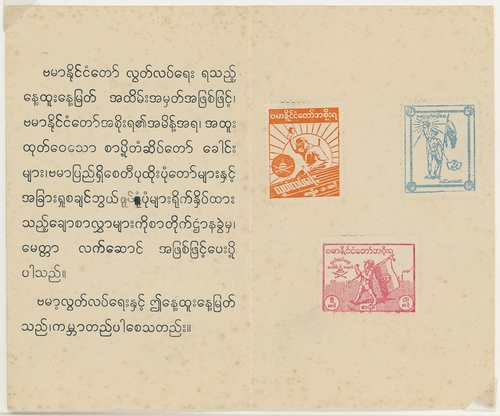 ဗမာနိုင်ငံတော် လွတ်လပ်ရေး ရသည့်
နေ့ထူးနေ့မြတ် အထိမ်းအမှတ်အဖြစ်ဖြင့်၊
ဗမာနိုင်ငံတော်အစိုးရ၏အမိန့်အရ၊ အထူး
ထုတ်ဝေသော စာပို့တံဆိပ်တော် ခေါင်း
များ၊ဗမာပြည်ရှိစေတီပုထိုးပုံတော်များနှင့်
အခြားရှုစချင်ဘွယ် ရုပ်ပုံများရိုက်နှိပ်ထား
သည့်ချောစာလွှာများကိုစာတိုက်ဌာနခွဲမှ၊
မေတ္တာ လက်ဆောင် အဖြစ်ဖြင့်ပေးပို့
ပါသည်။
ဗမာ့လွတ်လပ်ရေးနှင့် ဤနေ့ထူးနေ့မြတ်
သည်၊ကမ္ဘာတည်ပါစေသတည်း။
ဗမာနိုင်ငံတော်အစိုးရ
ဗမာနိုင်ငံတော်အစိုးရ